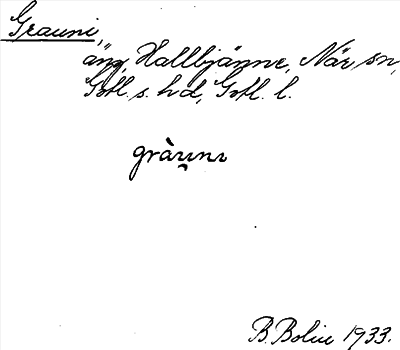 Grauni,
äng, Hallbjänne, När sn,
Gotl. s. hd, Gotl. l.
gràu̯nı
B. Bolin 1933.